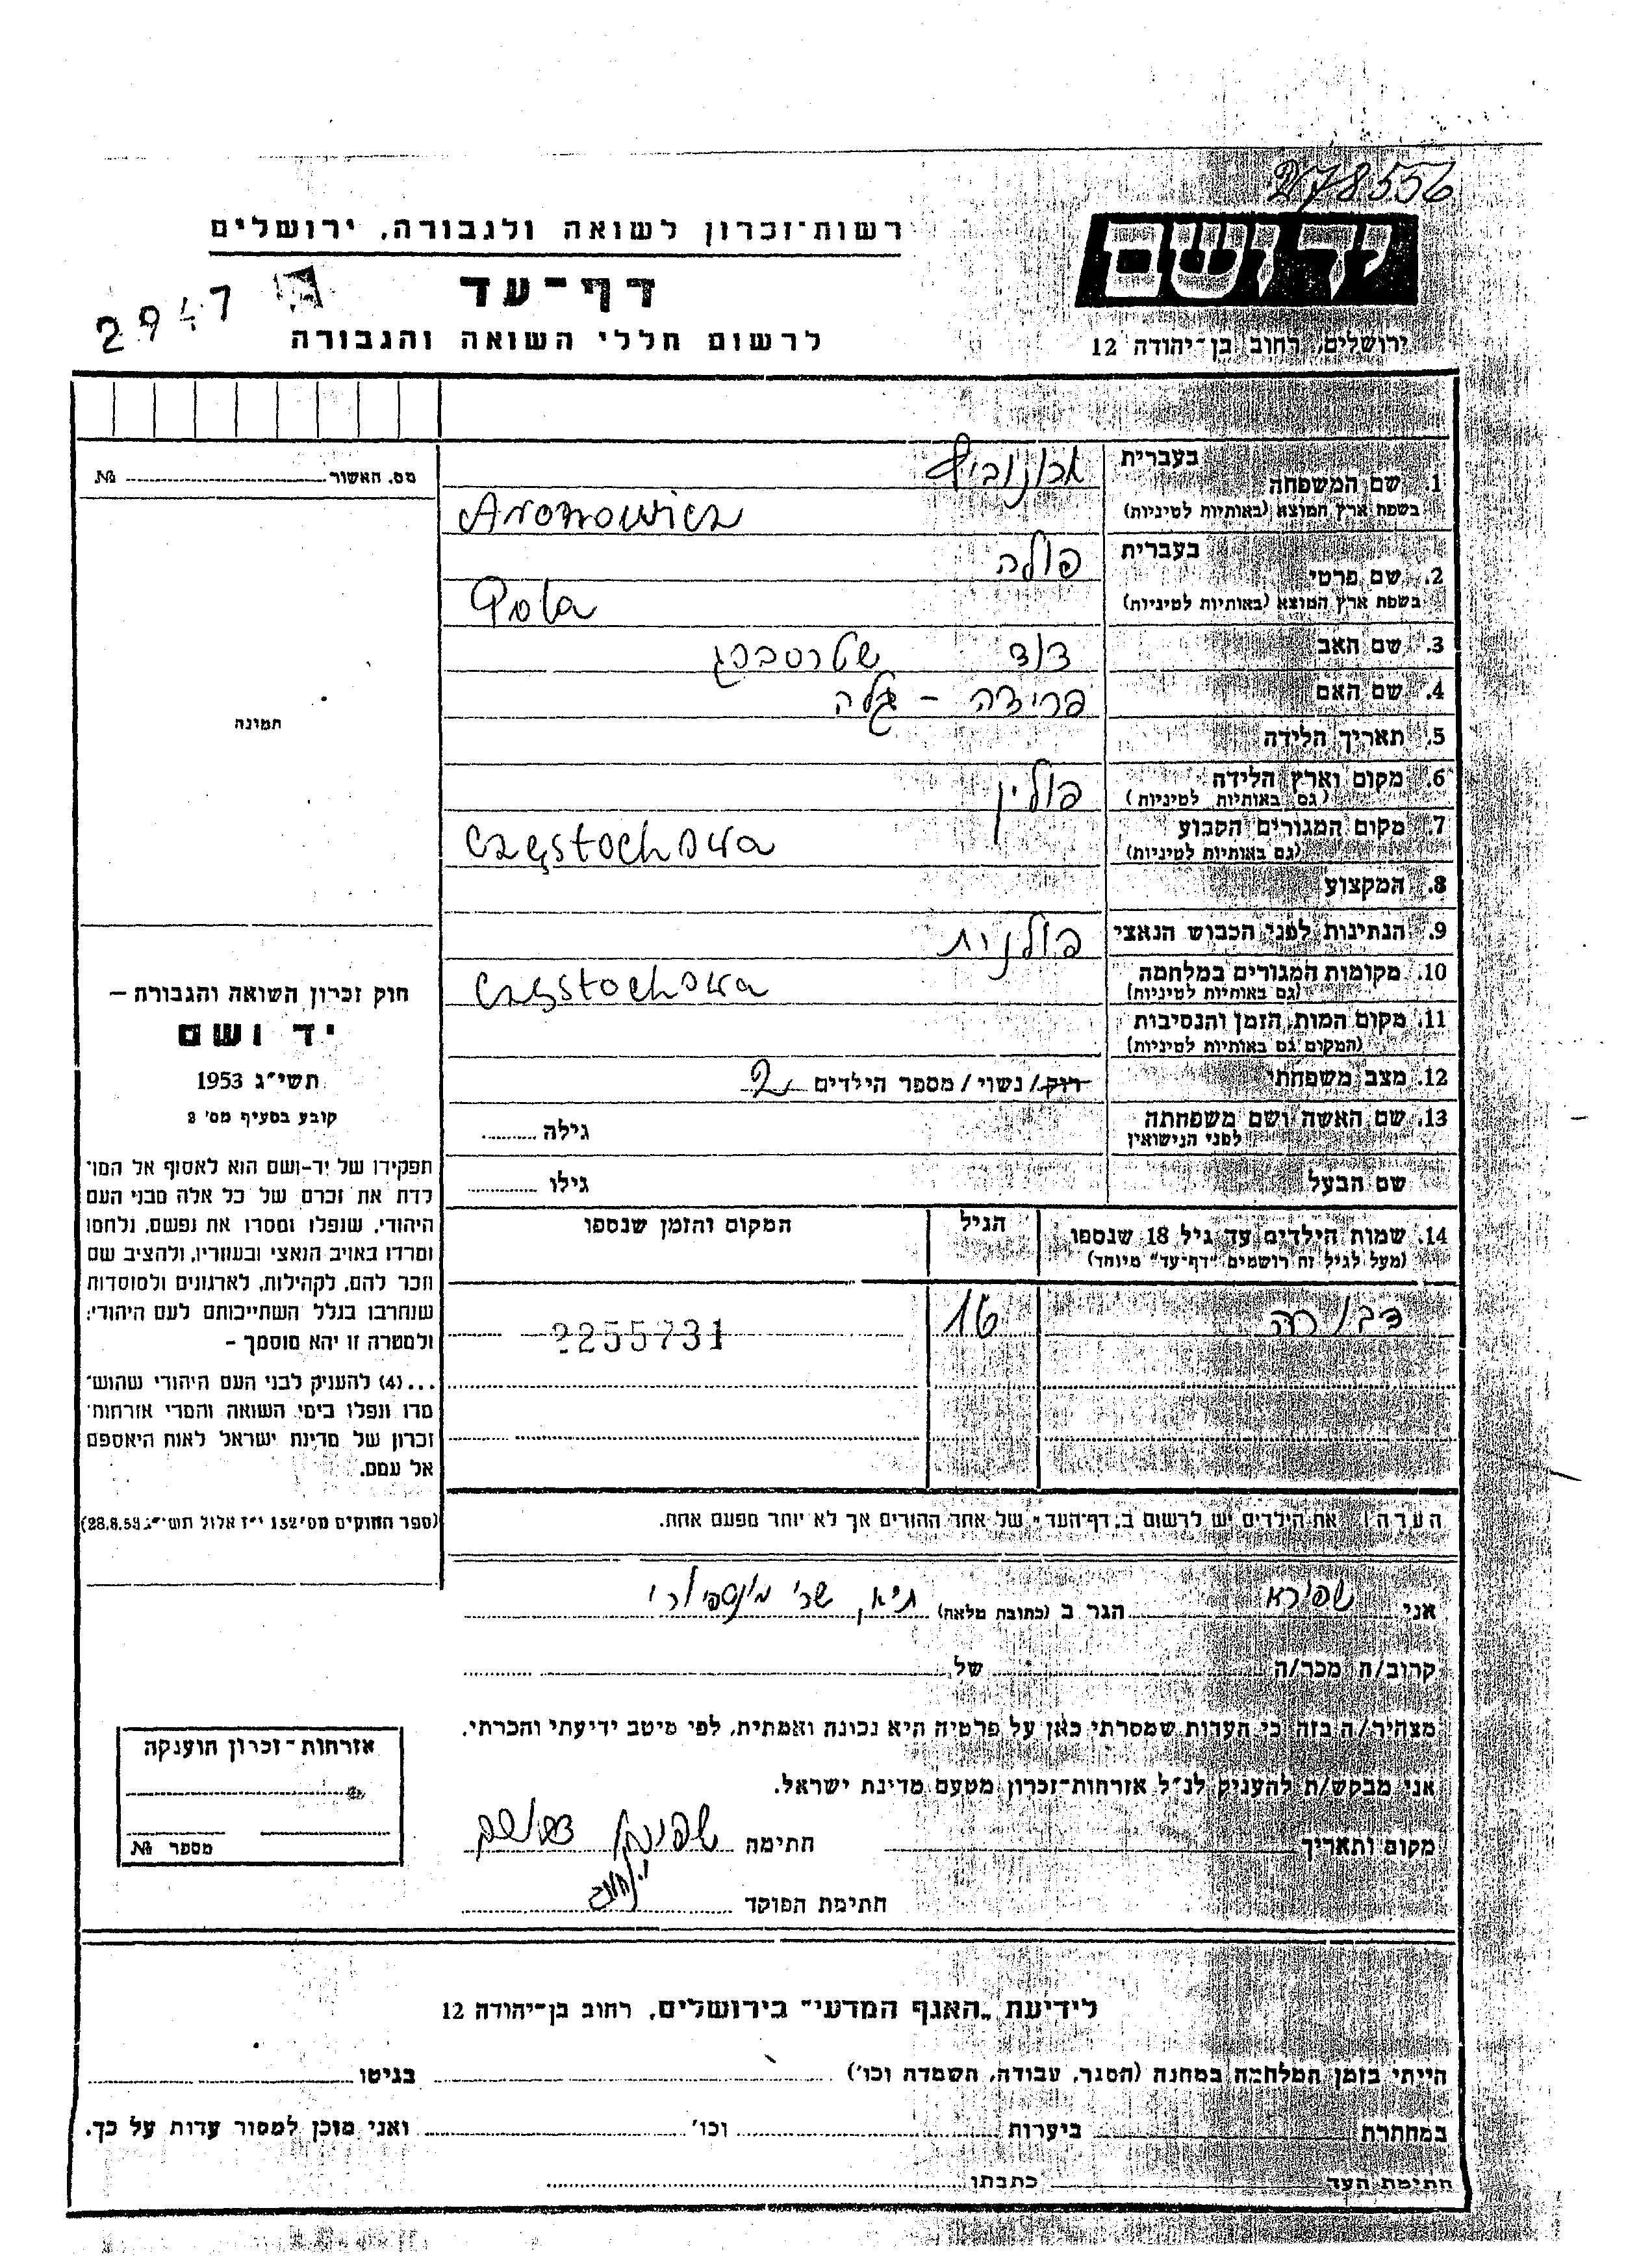 278556
יד ושם
ירושלים, רחוב בן־יהודה 12
רשות־זכרון לשואה ולגבורה, ירושלים
דף־עד
לרשום חללי השואה והגבורה
2947
מס. האשור №
תמונה
1. שם המשפחה
בעברית ארונוביץ
בשפת ארץ המוצא (באותיות לטיניות) Aronowicz
2. שם פרטי
בעברית פולה
בשפת ארץ המוצא (באותיות לטיניות) Pola
3. שם האב דוד שטרסברג
4. שם האם פרידה - גלה
5. תאריך הלידה
6. מקום וארץ הלידה פולין
(גם באותיות לטיניות)
7. מקום המגורים הקבוע Częstochowa
(גם באותיות לטיניות)
8. המקצוע
9. הנתינות לפני הכבוש הנאצי פולנית
10. מקומות המגורים במלחמה Częstochowa
(גם באותיות לטיניות)
11. מקום המות, הזמן והנסיבות
(המקום גם באותיות לטיניות)
12. מצב משפחתי רוק / נשוי / מספר הילדים 2
13. שם האשה ושם משפחתה גילה
לפני הנישואין
שם הבעל גילו
14. שמות הילדים עד גיל 18 שנספו הגיל המקום והזמן שנספו
(מעל לגיל זה רושמים "דף־עד" מיוחד)
דבורה 16 2255731
הערה: את הילדים יש לרשום ב„דף־העד" של אחד ההורים אך לא יותר מפעם אחת.
חוק זכרון השואה והגבורה –
יד ושם
תשי"ג 1953
קובע בסעיף מס' 2
תפקידו של יד-ושם הוא לאסוף אל המו־
לדת את זכרם של כל אלה מבני העם
היהודי, שנפלו ומסרו את נפשם, נלחמו
ומרדו באויב הנאצי ובעוזריו, ולהציב שם
וזכר להם, לקהילות, לארגונים ולמוסדות
שנחרבו בגלל השתייכותם לעם היהודי;
ולמטרה זו יהא מוסמך –
...(4) להעניק לבני העם היהודי שהוש־
מדו ונפלו בימי השואה והמרי אזרחות־
זכרון של מדינת ישראל לאות היאספם
אל עמם.
(ספר החוקים מס' 132 י"ז אלול תשי"ג 28.8.53)
אני שפירא הגר ב (כתובת מלאה) ת״א,
קרוב/ה מכר/ה של
מצהיר/ה בזה כי העדות שמסרתי כאן על פרטיה היא נכונה ואמתית, לפי מיטב ידיעתי והכרתי.
אני מבקש/ת להעניק לנ"ל אזרחות־זכרון מטעם מדינת ישראל.
מקום ותאריך חתימה
חתימת הפוקד
אזרחות־זכרון הוענקה
מספר №
לידיעת „האגף המדעי" בירושלים, רחוב בן־יהודה 12
הייתי בזמן המלחמה במחנה (הסגר, עבודה, השמדה וכו') בגיטו
במחתרת ביערות וכו' ואני מוכן למסור עדות על כך.
חתימת העד כתבתו